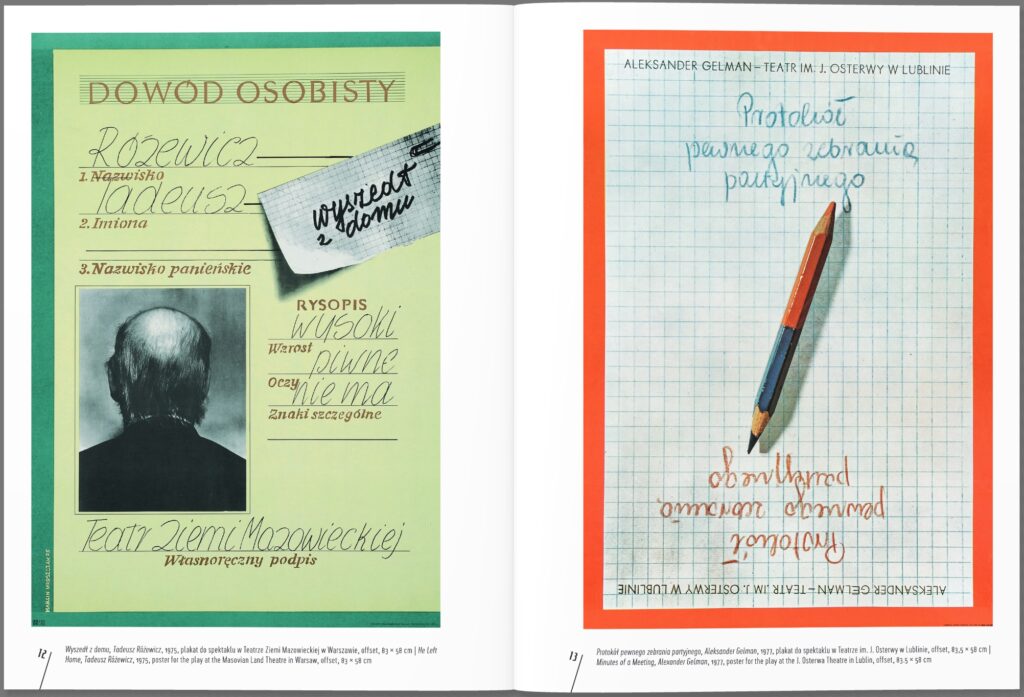 DOWÓD OSOBISTY
Różewicz
1. Nazwisko
Tadeusz
2. Imiona
wyszedł
z domu
3. Nazwisko panieńskie
RYSOPIS
wysoki
Wzrost
piwne
Oczy
nie ma
Znaki szczególne
Teatr Ziemi Mazowieckiej
Własnoręczny podpis
12
Wyszedł z domu, Tadeusz Różewicz, 1975, plakat do spektaklu w Teatrze Ziemi Mazowieckiej w Warszawie, offset, 83 × 58 cm | He Left
Home, Tadeusz Różewicz, 1975, poster for the play at the Masovian Land Theatre in Warsaw, offset, 83 × 58 cm
ALEKSANDER GELMAN – TEATR IM. J. OSTERWY W LUBLINIE
Protokół
pewnego zebrania
partyjnego
partyjnego
pewnego zebrania
Protokół
ALEKSANDER GELMAN – TEATR IM. J. OSTERWY W LUBLINIE
13
Protokół pewnego zebrania partyjnego, Aleksander Gelman, 1977, plakat do spektaklu w Teatrze im. J. Osterwy w Lublinie, offset, 83,5 × 58 cm |
Minutes of a Meeting, Alexander Gelman, 1977, poster for the play at the J. Osterwa Theatre in Lublin, offset, 83.5 × 58 cm